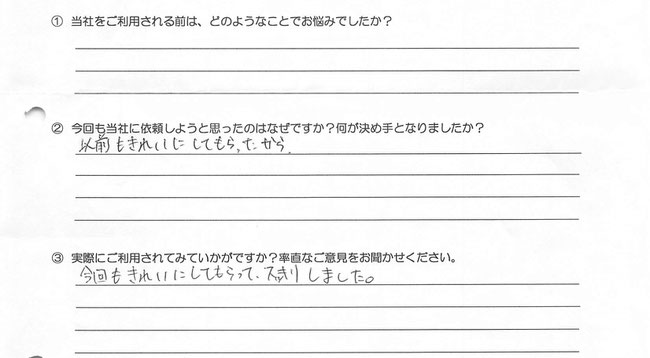 ① 当社をご利用される前は、どのようなことでお悩みでしたか？
② 今回も当社に依頼しようと思ったのはなぜですか？何が決め手となりましたか？
以前もきれいにしてもらったから.
③ 実際にご利用されてみていかがですか？率直なご意見をお聞かせください。
今回もきれいにしてもらって、スッキリしました。